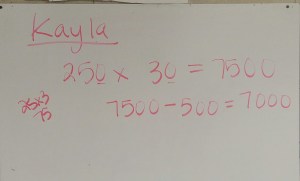 Kayla
250 x 30 = 7500
25x3
75
7500 - 500 = 7000